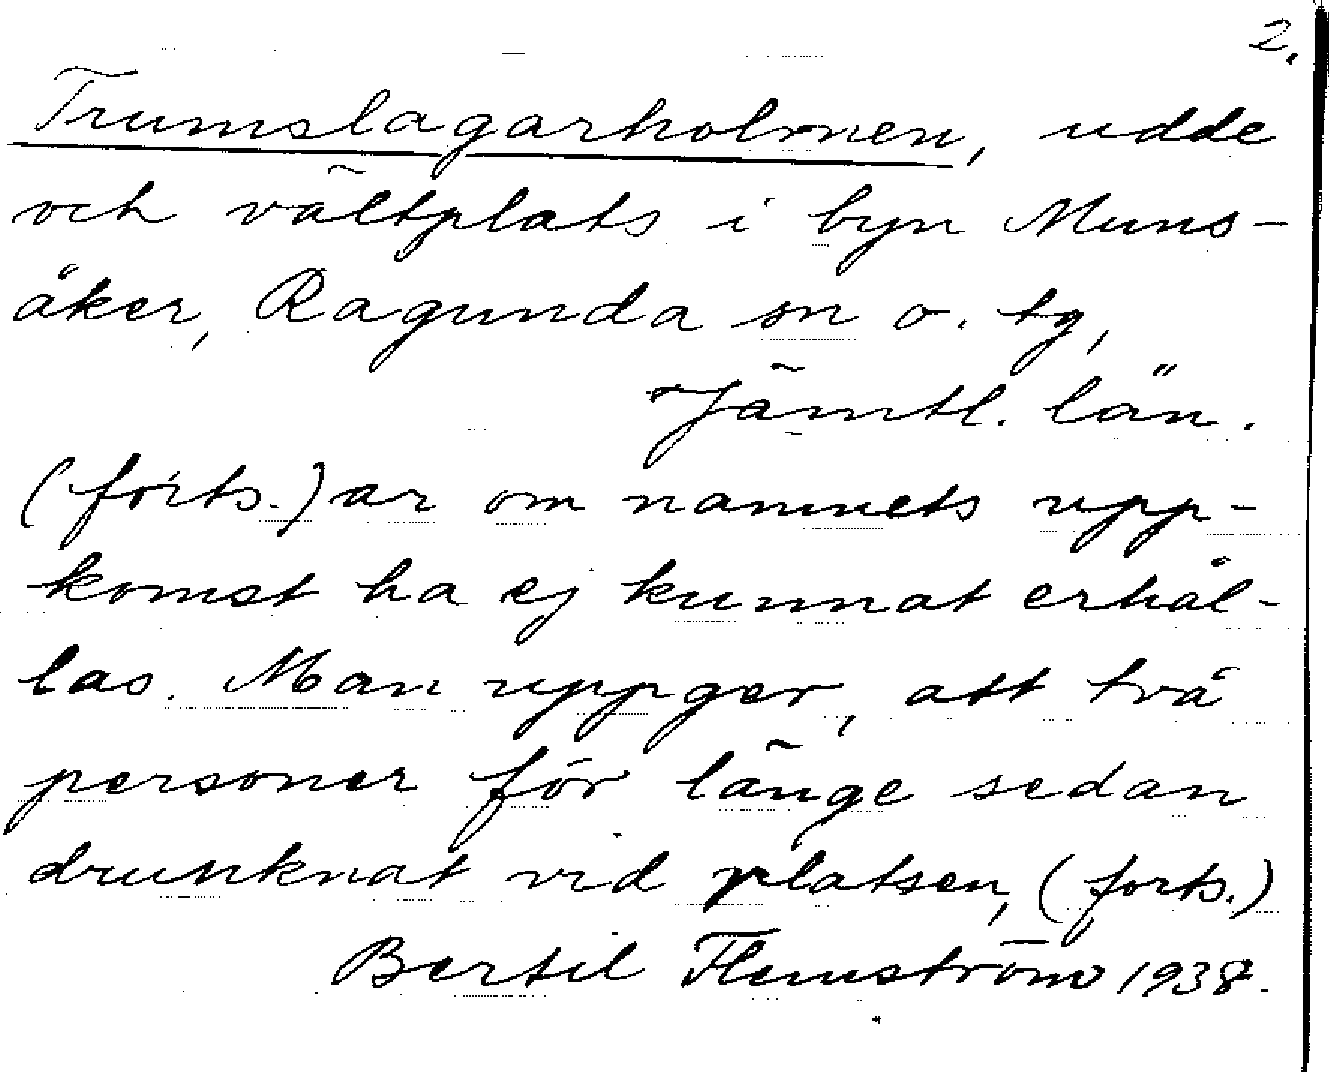 2.
Trumslagarholmen, udde
och vältplats i byn Muns-
åker, Ragunda sn o. tg,
Jämtl. län.
(forts.) ar om namnets upp-
komst ha ej kunnat erhål-
las. Man uppger, att två
personer för länge sedan
drunknat vid platsen, (forts.)
Bertil Flemström 1938.